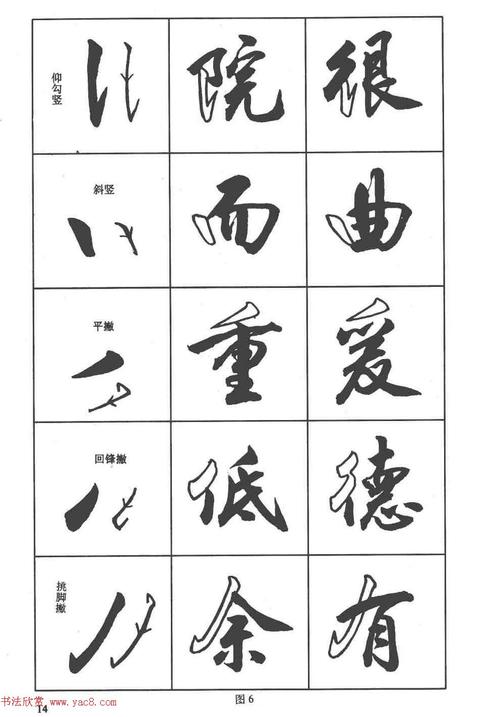 仰勾竖 院 很
斜竖 而 曲
平撇 重 爰
回锋撇 低 德
挑脚撇 余 有
图6
书法欣赏 www.yac8.com
14